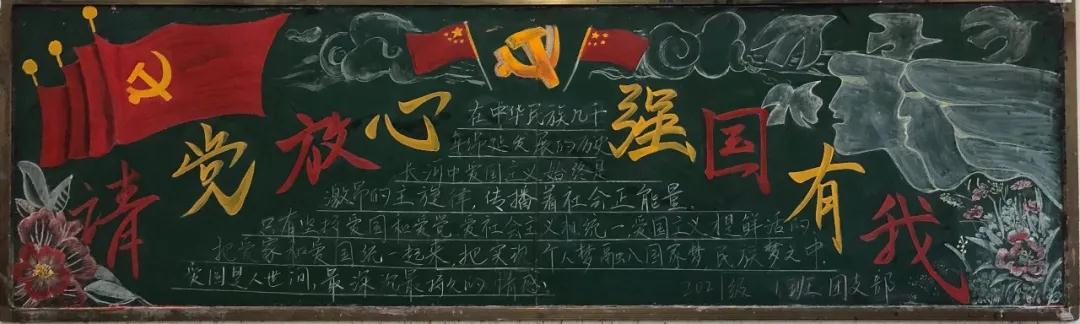 请党放心 强国有我
在中华民族几千
年绵延发展的历史
长河中爱国主义始终是
激昂的主旋律,传播着社会正能量
只有坚持爱国和爱党、爱社会主义相统一,爱国主义是鲜活的
把爱家和爱国统一起来,把实现个人梦融入国家梦、民族梦之中
爱国是人世间最深沉最持久的情感
2021级 1班团支部